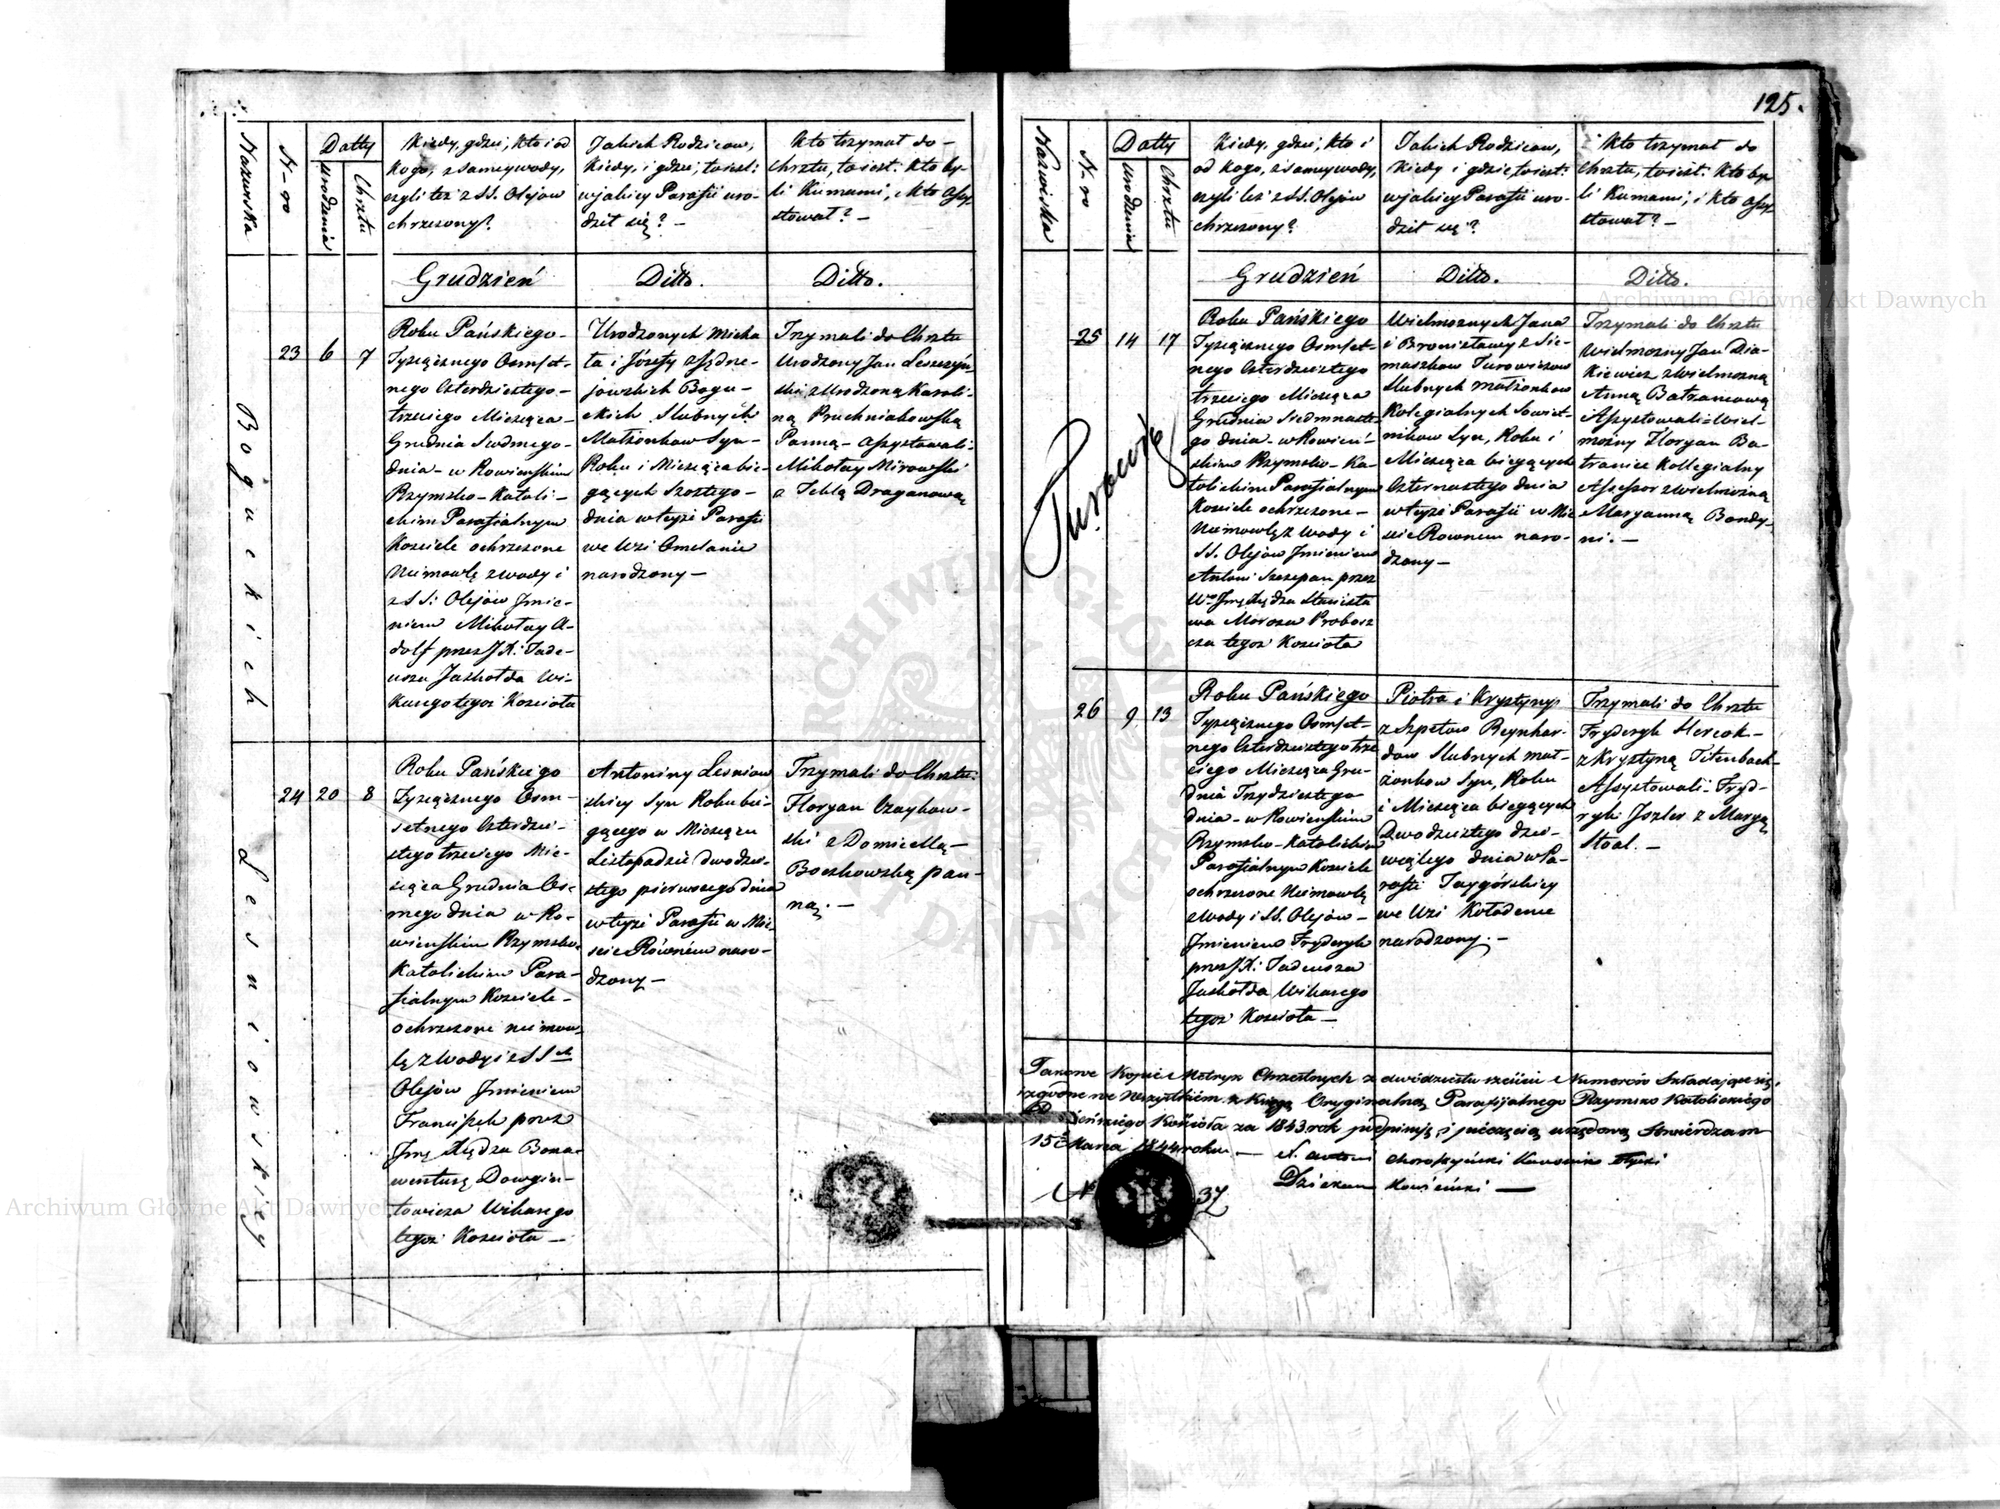 Nazwiska
N-ro
Datty
Urodzenia
Chrztu
Kiedy, gdzie, kto i od
kogo, z samey wody,
czyli też z SS. Olejów
chrzczony?
Jakich Rodziców,
kiedy, i gdzie, to iest:
w jakiey Parafii uro-
dził się? –
Kto trzymał do-
Chrztu, to iest: kto by-
li Kumami, i kto assy-
stował? –
Grudzień
Ditto.
Ditto.
Boguckich
23
6
7
Roku Pańskiego-
Tysiącznego Osmset-
nego Czterdziestego-
trzeciego Miesiąca-
Grudnia Siodmego-
dnia- w Rowieńskim
Rzymsko-Katoli-
ckim Parafialnym
Kościele ochrzczone
Niemowlę z wody i
z SS: Olejów Jmie-
niem Mikołay A-
dolf przez J.X: Tade-
usza Jaskołda Wi-
karego tegoż Kościoła
Urodzonych Micha
ła i Józefy z Jędrze-
jowskich Bogu-
ckich Slubnych
Małżonkow Syn-
Roku i Miesiąca bie-
gących Szostego-
dnia w teyże Parafii
we Wsi Omelanie
narodzony –
Trzymali do Chrztu
Urodzony Jan Leszczyń-
ski z Urodzoną Karoli-
ną Pruchniakowską
Panną- Assystowali-
Mikołay Mirowski
z Teklą Draganową
Lesniowskiey
24
20
8
Roku Pańskiego
Tysiącznego Osm-
setnego Czterdzie-
stego trzeciego Mie-
siąca Grudnia Os-
mego dnia w Ro-
wieńskim Rzymsko-
Katolickim Para-
fialnym Kościele-
ochrzczone niemow-
lę z wody i z SSch
Olejów Jmieniem
Franciszek przez
Jmę Xiędza Bona-
wenturę Dowgia-
łowicza Wikarego
tegoż Kościoła –
Antoniny Lesniow
skiey Syn Roku bie-
gącego w Miesiącu
Listopadzie dwudzie-
stego pierwszego dnia
w teyże Parafii w Mie-
ście Równém naro-
dzony –
Trzymali do Chrztu:
Floryan Czaykow-
ski z Domicellą-
Boczkowską pan-
ną. –
125.
Nazwiska
N-ro
Datty
Urodzenia
Chrztu
Kiedy, gdzie, kto i
od kogo, z samey wody,
czyli też z SS. Olejów
chrzczony?
Jakich Rodziców,
kiedy i gdzie, to iest:
w jakiey Parafii uro-
dził się?
Kto trzymał do
Chrztu, to iest: kto by-
li Kumami, i kto Assy-
stował? –
Grudzień
Ditto.
Ditto.
25
14
17
Roku Pańskiego
Tysiącznego Osmset-
nego Czterdziestego
trzeciego Miesiąca
Grudnia Siedmnaste-
go dnia- w Rowień-
skim Rzymsko-Ka-
tolickim Parafialnym
Kościele ochrzczone-
Niemowlę z wody i
SS. Olejów Jmieniem
Antoni Szczepan przez
Wo Jmę Xiędza Stanisła
wa Moroza Probosz
cza tegoż Kościoła
Wielmoznych Jana
i Bronisławy z Sie-
maszkow Turowiczow
Slubnych małżonkow
Kolegialnych Sowiet-
nikow Syn, Roku i
Miesiąca bieżących
Czternastego dnia
w teyże Parafii w Mie
ście Rownem naro-
dzony –
Trzymali do Chrztu
Wielmozny Jan Dia-
kiewicz z Wielmozną
Anną Batranicową
Assystowali- Wiel-
możny Floryan Ba-
tranice Kollegialny
Assessor z Wielmożną
Maryanną Bondy-
ni. –
26
9
13
Roku Pańskiego
Tysiącznego Osmset-
nego Czterdziestego trze
ciego Miesiąca Gru-
dnia Trzydziestego
dnia- w Rowieńskim
Rzymsko-Katolickim
Parafialnym Kościele
ochrzczone Niemowlę
z wody i SS. Olejów-
Jmieniem Fryderyk
przez J.X: Tadeusza
Jaskółda Wikarego
tegoż Kościoła –
Piotra i Krystyny
z Szpetow Reynhar-
dow Slubnych mał-
żonkow Syn, Roku
i Miesiąca biegących
Dwudziestego dzie-
wiątego dnia w Pa-
rafii Taygórskiey
we Wsi Kołodenie
narodzony. –
Trzymali do Chrztu
Fryderyk Hercok-
z Krystyną Titenbach-
Assystowali- Fryd-
ryk Jozler z Maryą
Stoal. –
Takowe Kopie Metryk Chrzestnych z dwódziestu sześciu Numerów Składające się,
izgodne we Wszystkiem z Xięgą Oryginalną Parafijalnego Rzymsko Katolickiego
Kościoła za 1843 rok podpisuję i pieczęcią urzędową Stwierdzam
15 Marca 1844 roku –
Dziekan Rowieński –
N 37
Archiwum Główne Akt Dawnych
Archiwum Główne Akt Dawnych
ARCHIWUM GŁÓWNE AKT DAWNYCH